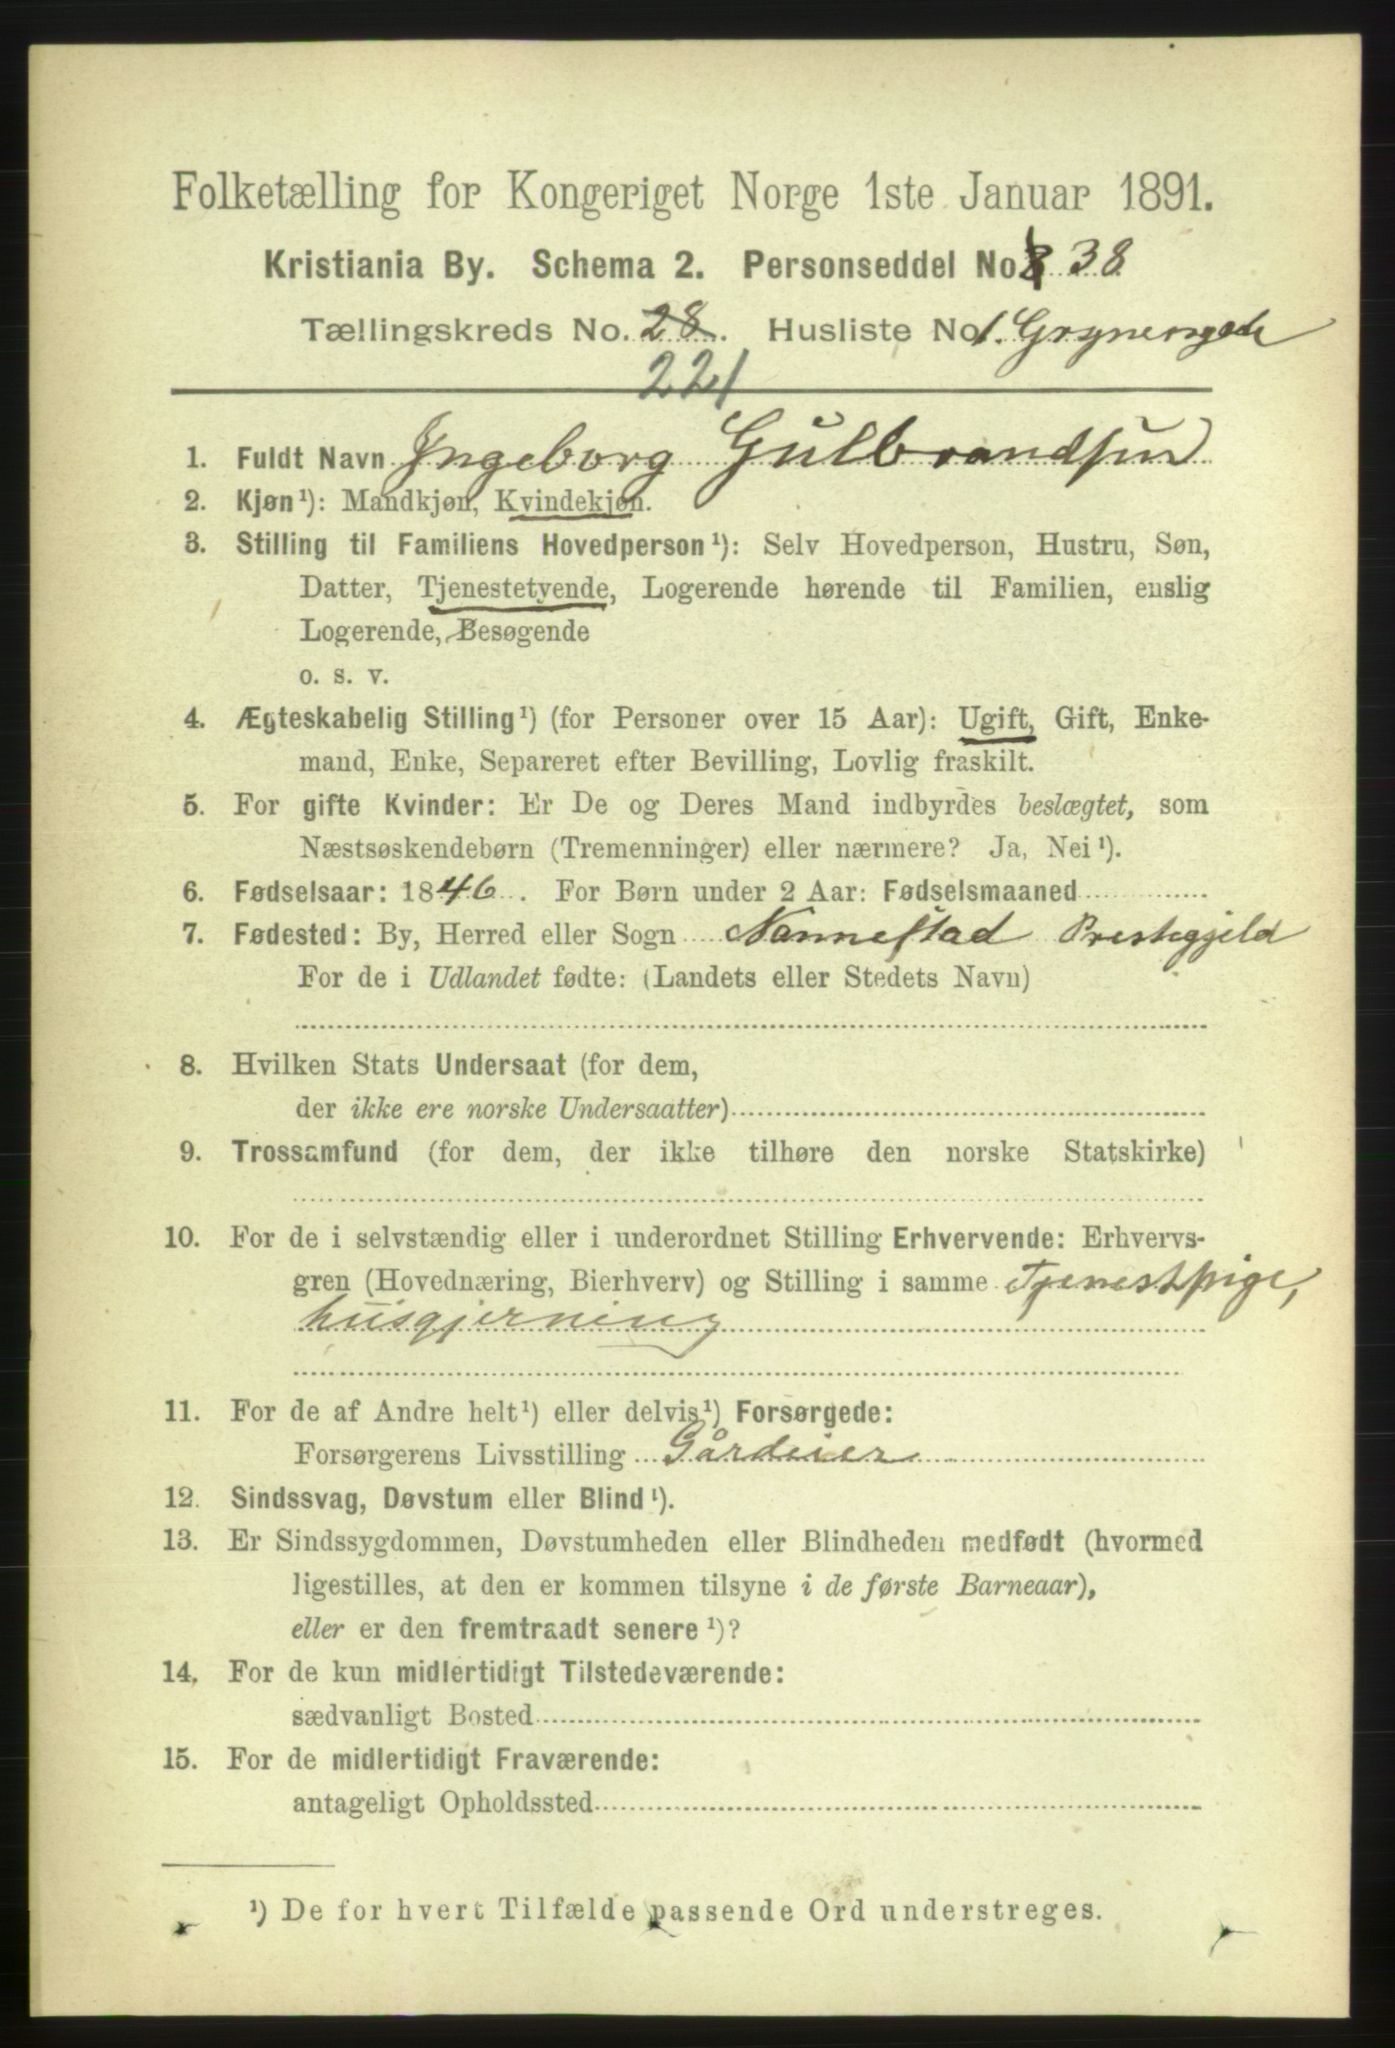 Folketælling for Kongeriget Norge 1ste Januar 1891.
Kristiania By. Schema 2. Personseddel No 38
Tællingskreds No. 28. Husliste No 1. Grynersgade
221
1. Fuldt Navn Ingeborg Gulbrandsen
2. Kjøn¹): Mandkjøn, Kvindekjøn.
3. Stilling til Familiens Hovedperson¹): Selv Hovedperson, Hustru, Søn,
Datter, Tjenestetyende, Logerende hørende til Familien, enslig
Logerende, Besøgende
o. s. v.
4. Ægteskabelig Stilling¹) (for Personer over 15 Aar): Ugift, Gift, Enke-
mand, Enke, Separeret efter Bevilling, Lovlig fraskilt.
5. For gifte Kvinder: Er De og Deres Mand indbyrdes beslægtet, som
Næstsøskendebørn (Tremenninger) eller nærmere? Ja, Nei¹).
6. Fødselsaar: 1846. For Børn under 2 Aar: Fødselsmaaned
7. Fødested: By, Herred eller Sogn Nannestad Prestegjeld
For de i Udlandet fødte: (Landets eller Stedets Navn)
8. Hvilken Stats Undersaat (for dem,
der ikke ere norske Undersaatter)
9. Trossamfund (for dem, der ikke tilhøre den norske Statskirke)
10. For de i selvstændig eller i underordnet Stilling Erhvervende: Erhvervs-
gren (Hovednæring, Bierhverv) og Stilling i samme Tjenestpige,
husgjerning
11. For de af Andre helt¹) eller delvis¹) Forsørgede:
Forsørgerens Livsstilling Gårdeier
12. Sindssvag, Døvstum eller Blind¹).
13. Er Sindssygdommen, Døvstumheden eller Blindheden medfødt (hvormed
ligestilles, at den er kommen tilsyne i de første Barneaar),
eller er den fremtraadt senere¹)?
14. For de kun midlertidigt Tilstedeværende:
sædvanligt Bosted
15. For de midlertidigt Fraværende:
antageligt Opholdssted
¹) De for hvert Tilfælde passende Ord understreges.